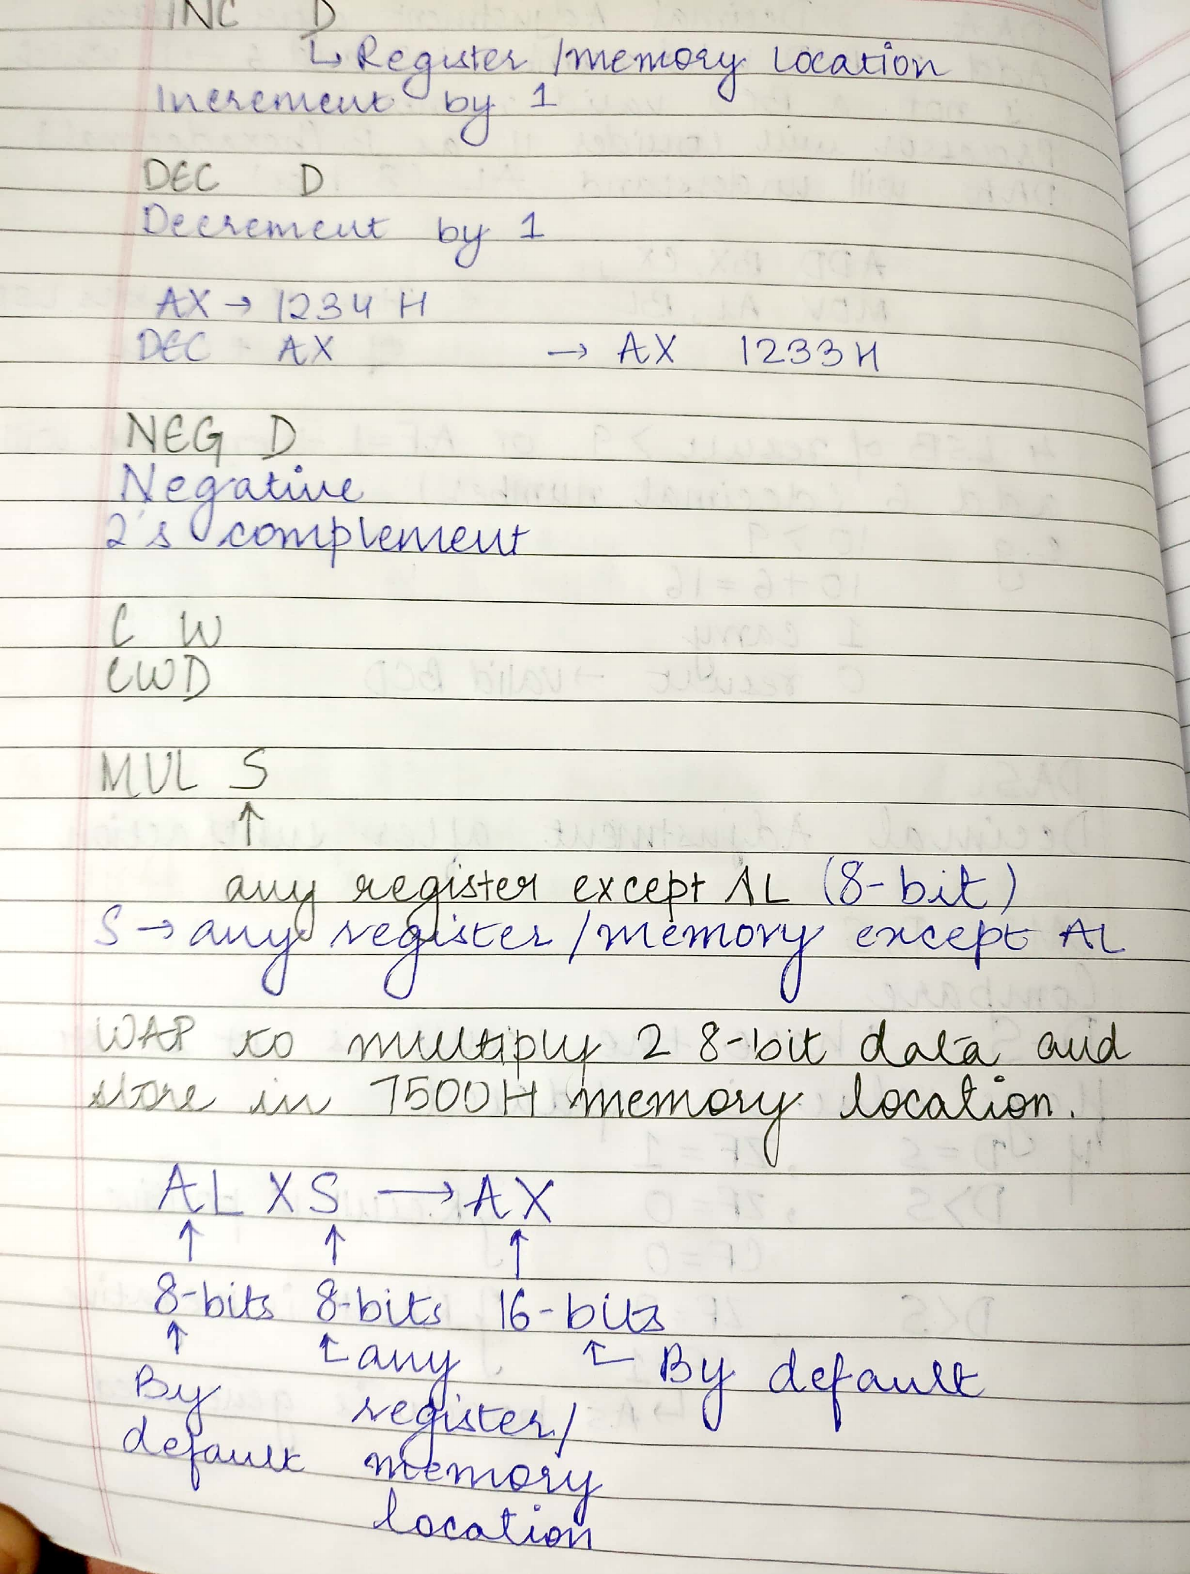 INC D
↳ Register / memory Location
Increment by 1
DEC D
Decrement by 1
AX → 1234 H
DEC AX → AX 1233H
NEG D
Negative
2's complement
C W
CWD
MUL S
↑
any register except AL (8-bit)
S → any register / memory except AL
WAP to multiply 2 8-bit data and
store in 7500H memory location.
AL X S → AX
↑ ↑ ↑
8-bits 8-bits 16-bits
↑ ↑ any ↑ By default
By register/
default memory
location